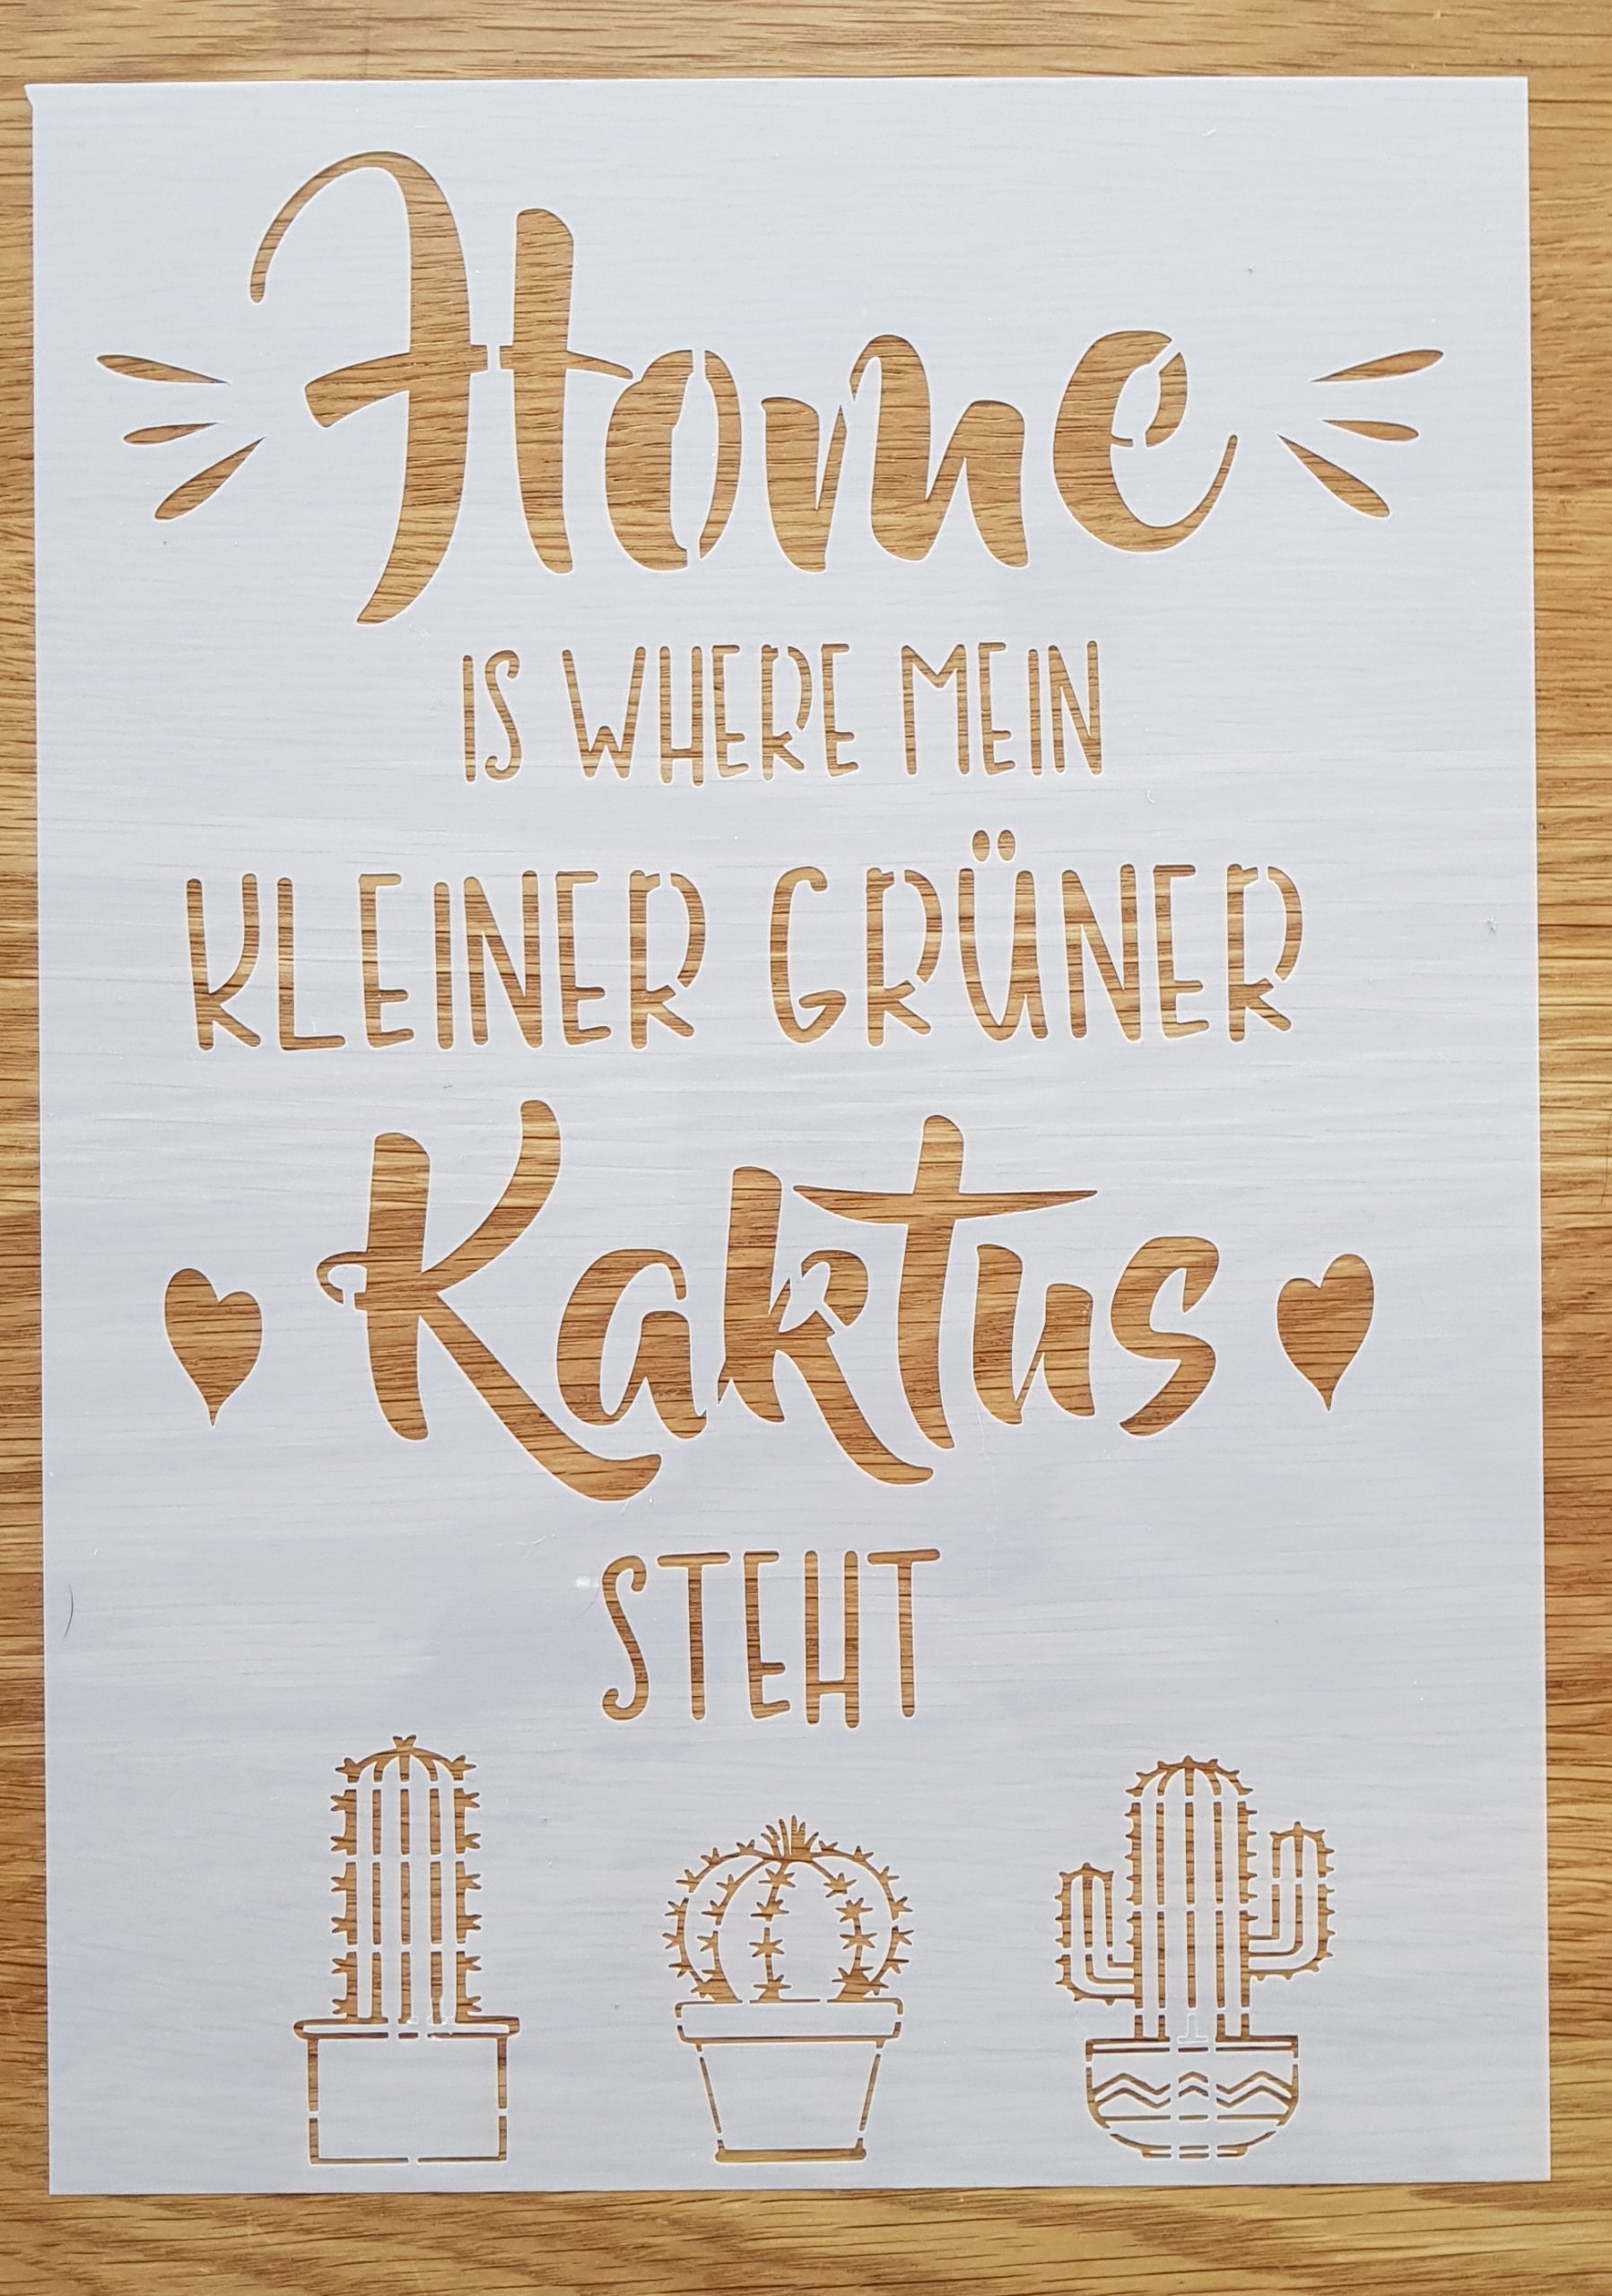 Home
IS WHERE MEIN
KLEINER GRÜNER
Kaktus
STEHT